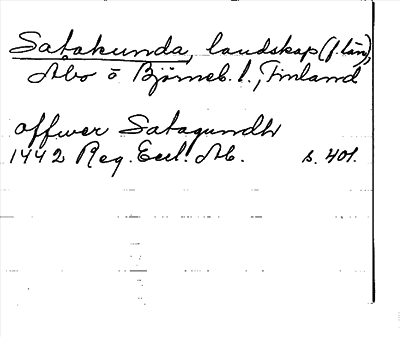 Satakunda, landskap (f. län),
Åbo o Björneb. l., Finland
offwer Satagundh
1442 Reg. Eccl. Ab. s. 401.